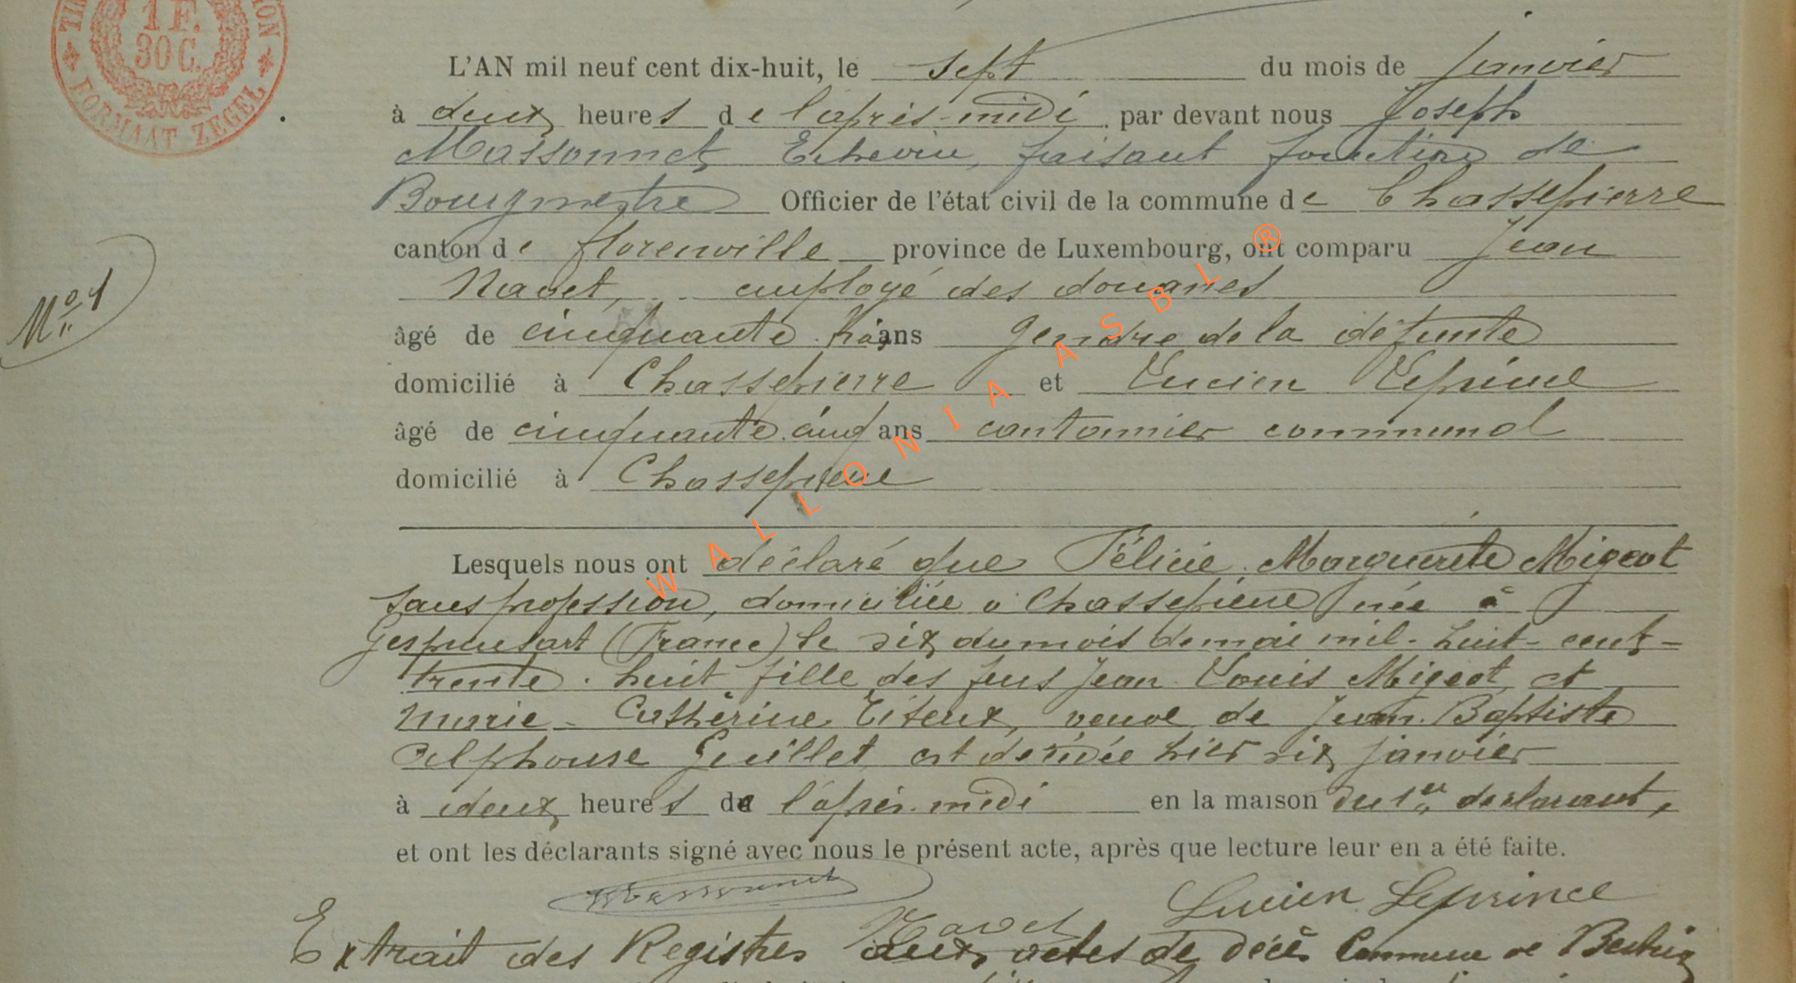 1 F.
30 C.
FORMAAT ZEGEL
L'AN mil neuf cent dix-huit, le sept du mois de janvier
à deux heures de l'après-midi par devant nous Joseph
Massonnet, Echevin, faisant fonction de
Bourgmestre Officier de l'état civil de la commune de Chassepierre
canton de florenville province de Luxembourg, ont comparu Jean
Navet, employé des douanes
âgé de cinquante trois ans gendre de la défunte
domicilié à Chassepierre et Lucien Leprince
âgé de cinquante cinq ans cantonnier communal
domicilié à Chassepierre
N° 1
Lesquels nous ont déclaré que Félicie Marguerite Migeot
sans profession, domiciliée à Chassepierre née à
Gespunsart (France) le six du mois de mai mil-huit-cent-
trente-huit fille des feus Jean Louis Migeot et
Marie-Catherine Titeux, veuve de Jean-Baptiste
Alphonse Guillet, est décédée hier six janvier
à deux heures de l'après-midi en la maison du 1er déclarant,
et ont les déclarants signé avec nous le présent acte, après que lecture leur en a été faite.
Massonnet
Navet Lucien Leprince
Extrait des Registres aux actes de décès Commune de
WALLONIA ASBL ®